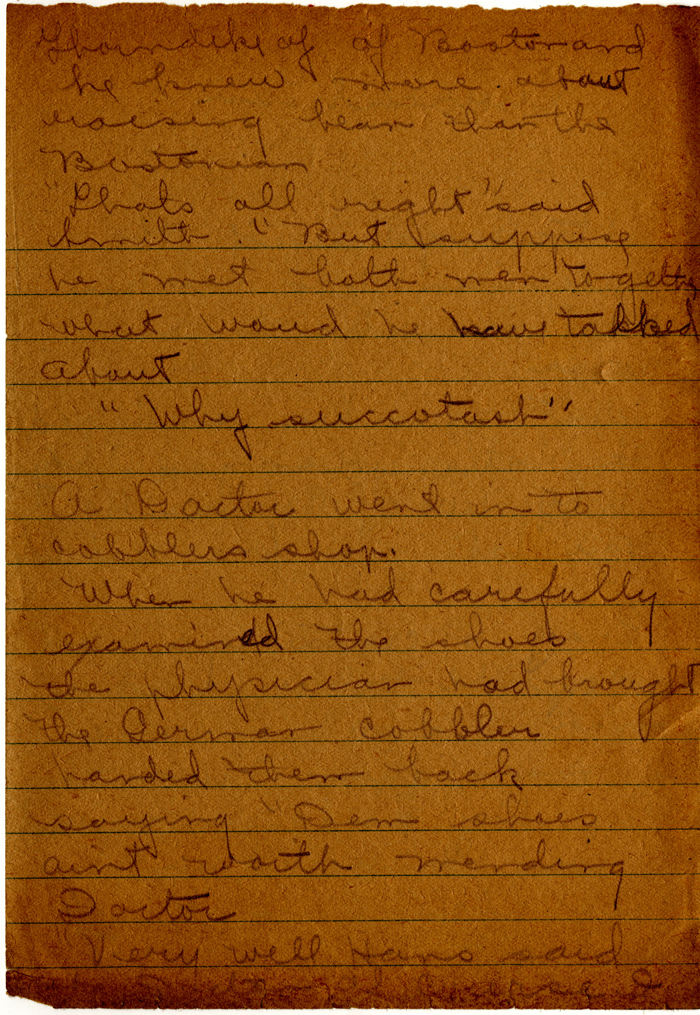 Thorndike of of Boston and
he knew more about
raising bean than the
Bostonian
"Thats all right" said
Smith. "But suppose
he met both men togeth
what woud he have talked
about
"Why succotash"
A Doctor went in to
cobblers shop.
When he had carefully
examined the shoes
the physician had brought
the German cobbler
handed them back
saying "Dem shoes
aint worth mending
Doctor
"Very well Hans said
the Doctor of course I